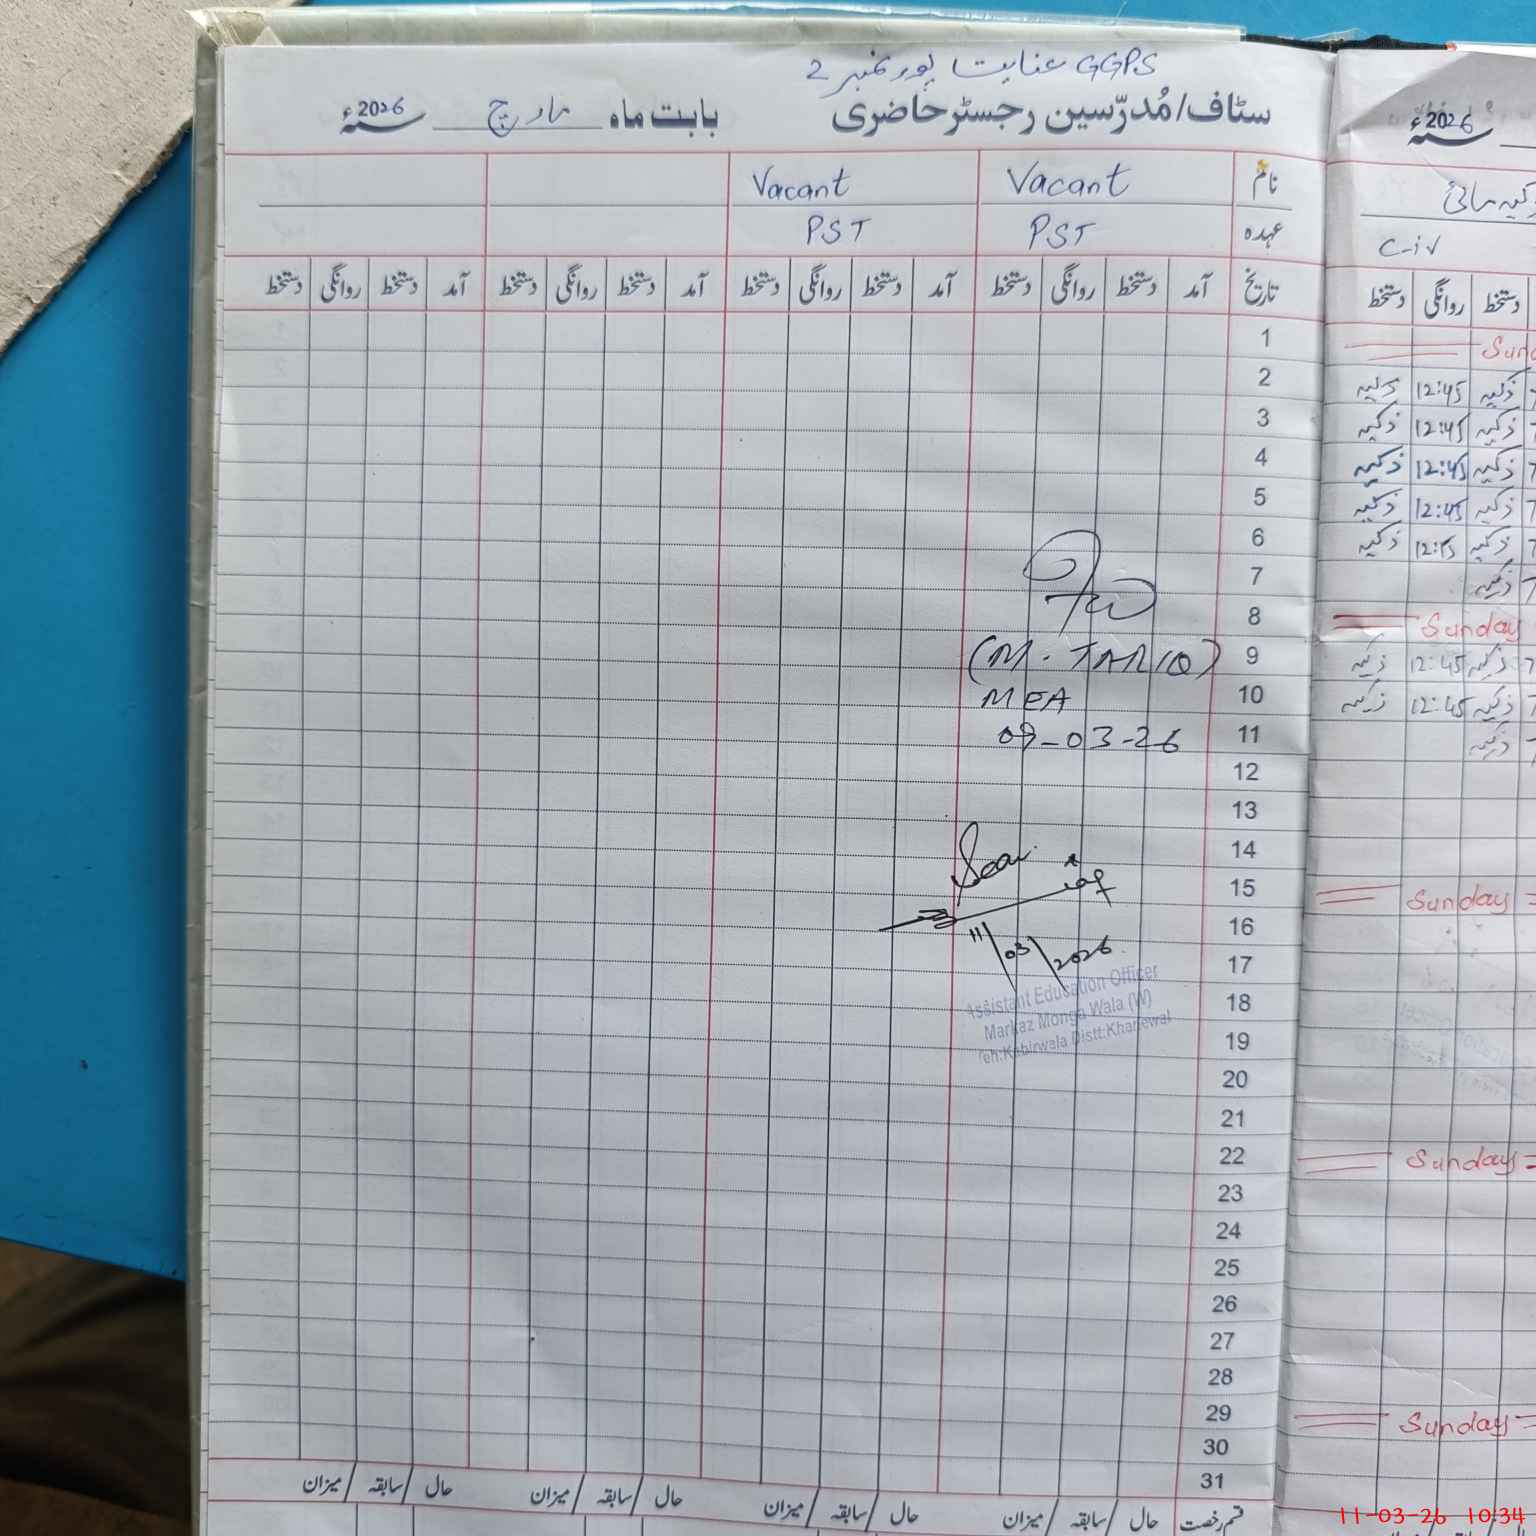 GGPS عنایت پور نمبر 2
سٹاف/مُدرّسین رجسٹر حاضری بابت ماہ مارچ سنہ 2026ء
نام Vacant Vacant
عہدہ PST PST
تاریخ آمد دستخط روانگی دستخط آمد دستخط روانگی دستخط آمد دستخط روانگی دستخط آمد دستخط روانگی دستخط
1
2
3
4
5
6
7
8
9 (M. TARIQ)
10 MEA
11 09-03-26
12
13
14
15
16 11/03/2026
17
Assistant Education Officer
18 Markaz Monga Wala (W)
19 Teh:Kabirwala Distt:Khanewal
20
21
22
23
24
25
26
27
28
29
30
31
قسم رخصت حال / سابقہ / میزان حال / سابقہ / میزان حال / سابقہ / میزان حال / سابقہ / میزان
سنہ 2026ء
C-iv
دستخط روانگی دستخط
Sund
ذکیہ 12:45 ذکیہ 7
ذکیہ 12:45 ذکیہ 7
ذکیہ 12:45 ذکیہ 7
ذکیہ 12:45 ذکیہ 7
ذکیہ 12:15 ذکیہ 7
ذکیہ 7
Sunday
ذکیہ 12:45 ذکیہ 7
ذکیہ 12:45 ذکیہ 7
ذکیہ 7
Sunday
Sunday
Sunday
11-03-26 10:34